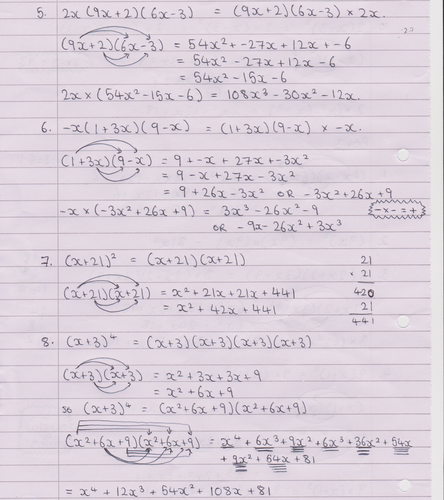 5. 2x (9x+2)(6x-3) = (9x+2)(6x-3) × 2x.
(9x+2)(6x-3) = 54x² + -27x + 12x + -6
= 54x² - 27x + 12x - 6
= 54x² - 15x - 6
2x × (54x² - 15x - 6) = 108x³ - 30x² - 12x.
6. -x(1+3x)(9-x) = (1+3x)(9-x) × -x.
(1+3x)(9-x) = 9 + -x + 27x + -3x²
= 9 - x + 27x - 3x²
= 9 + 26x - 3x² OR -3x² + 26x + 9
-x × (-3x² + 26x + 9) = 3x³ - 26x² - 9
OR -9x - 26x² + 3x³
- x - = +
7. (x+21)² = (x+21)(x+21)
(x+21)(x+21) = x² + 21x + 21x + 441
= x² + 42x + 441
21
× 21
420
21
441
8. (x+3)⁴ = (x+3)(x+3)(x+3)(x+3)
(x+3)(x+3) = x² + 3x + 3x + 9
= x² + 6x + 9
so (x+3)⁴ = (x²+6x+9)(x²+6x+9)
(x²+6x+9)(x²+6x+9) = x⁴ + 6x³ + 9x² + 6x³ + 36x² + 54x
+ 9x² + 54x + 81
= x⁴ + 12x³ + 54x² + 108x + 81